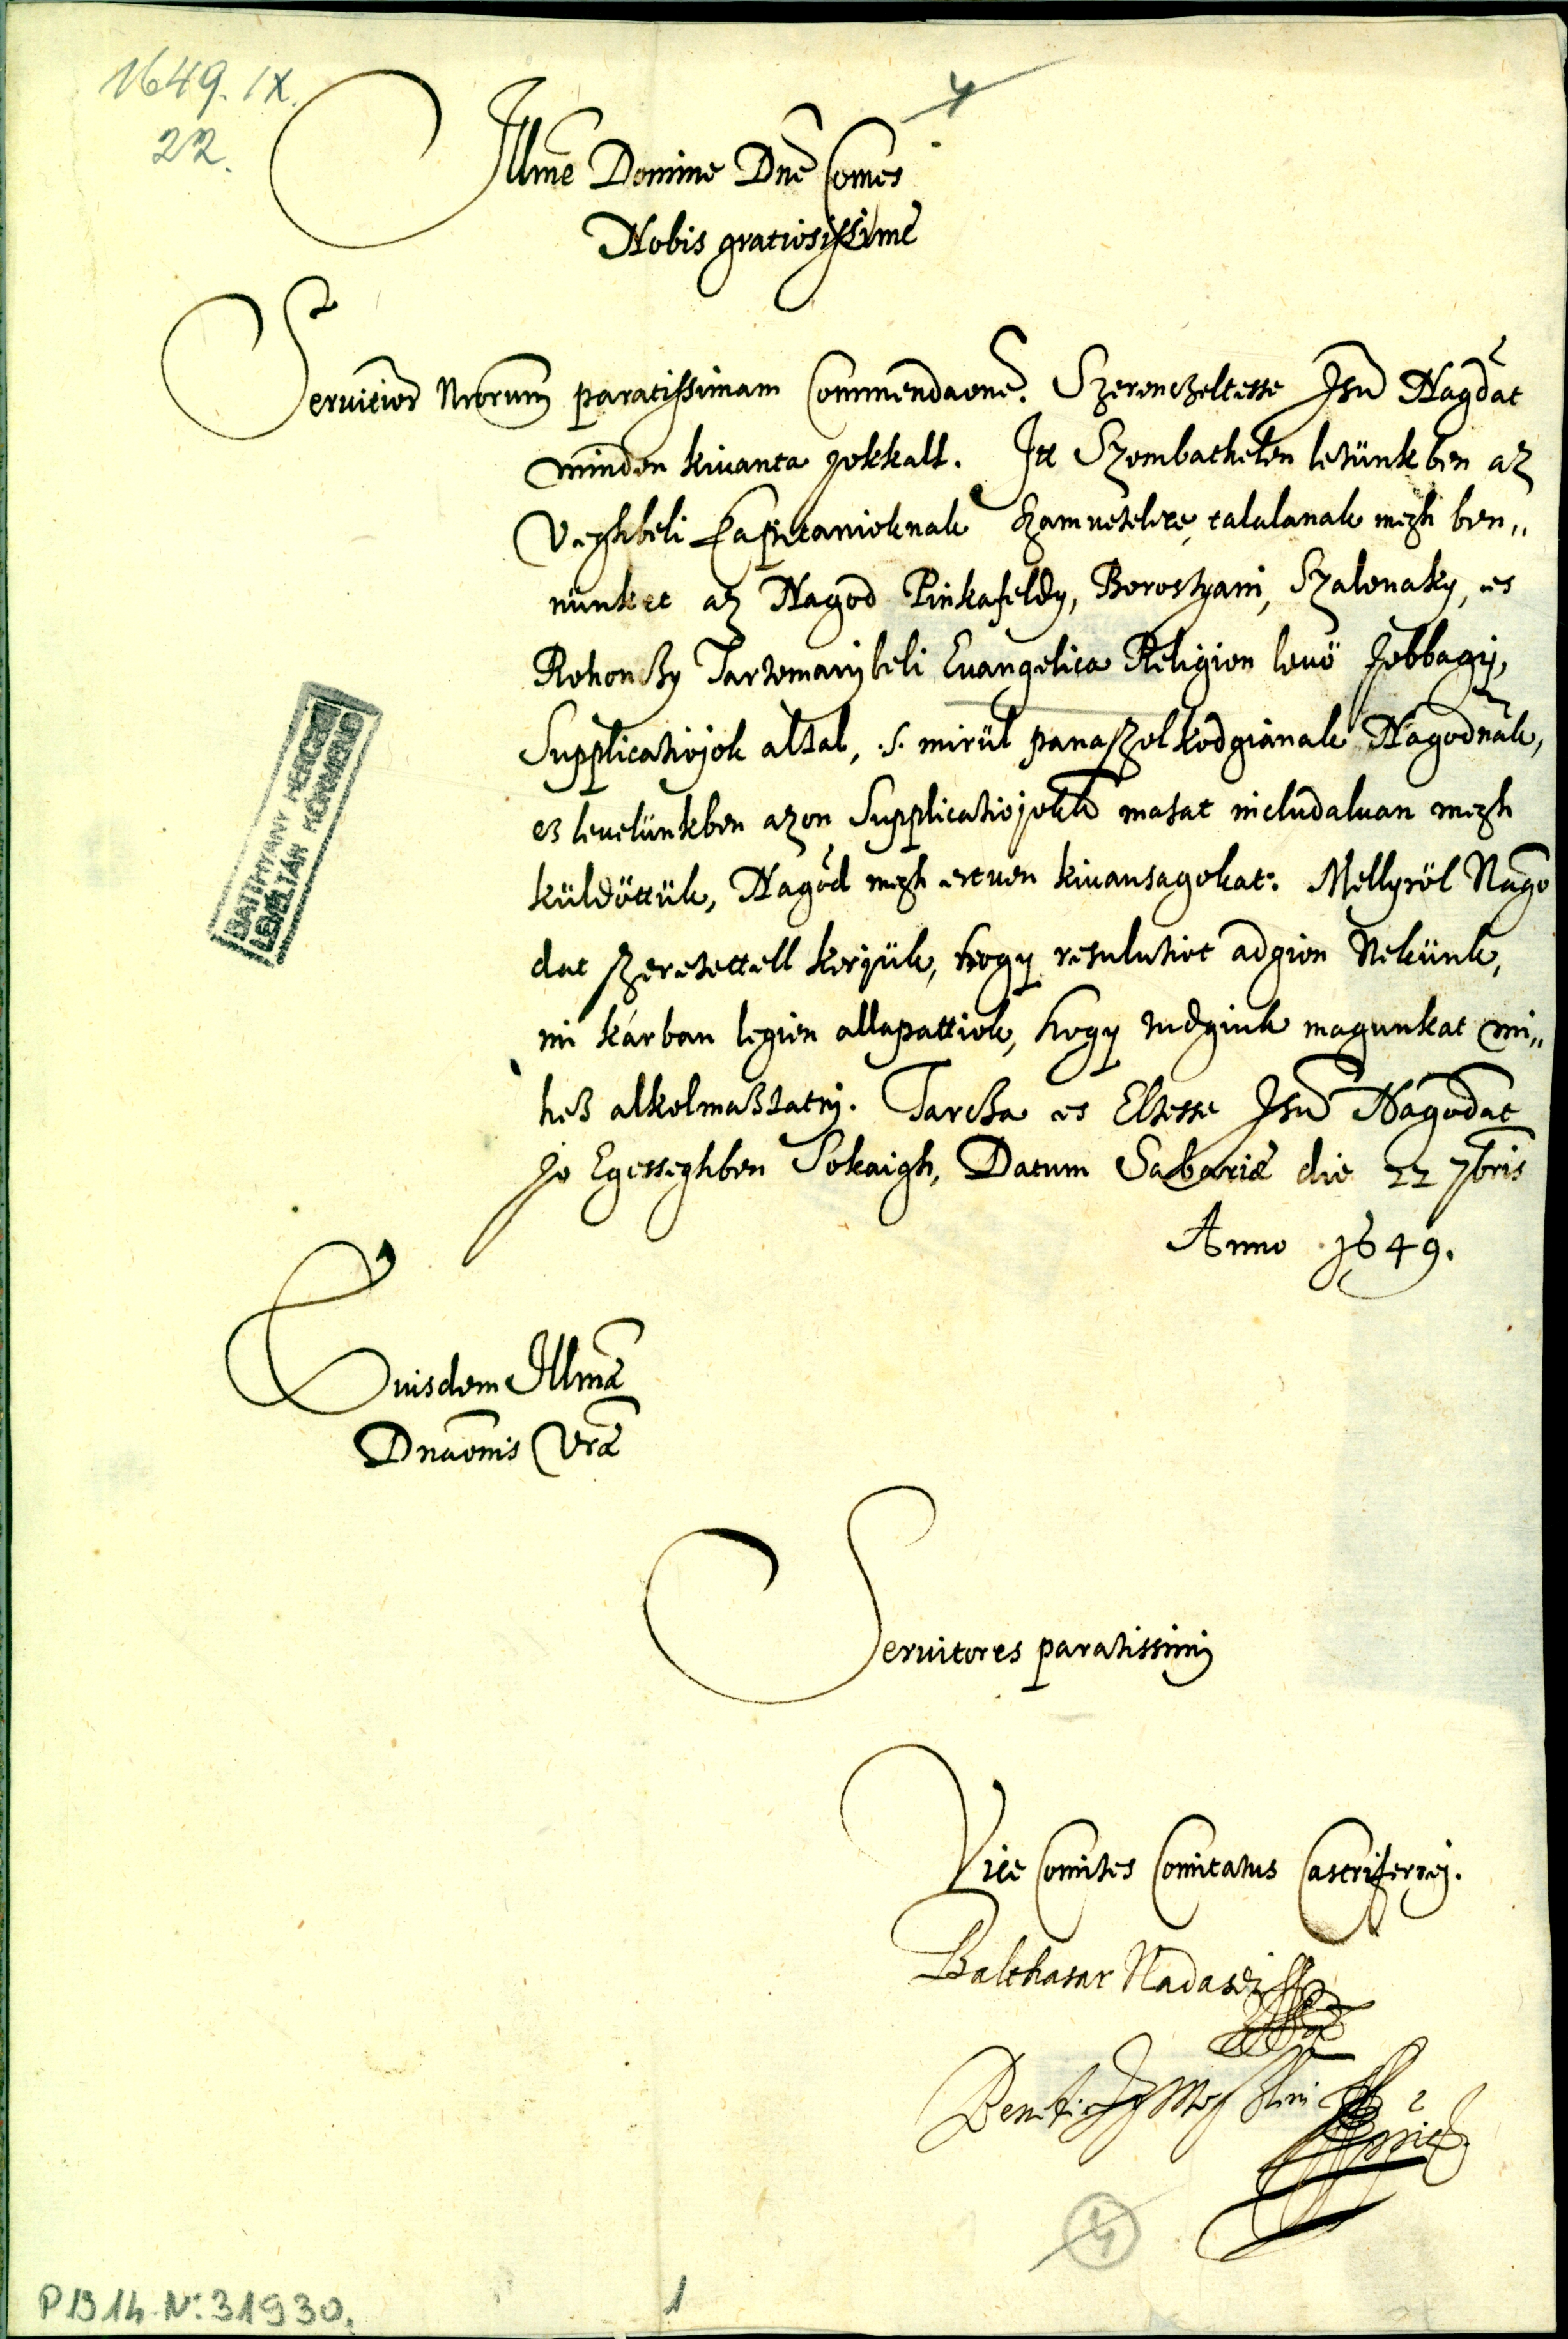 1649. IX.
22.
4
Illme Domine Dne Comes
Nobis gratiosissime
Servitior Nrorum paratissimam Commendaone. Szerencheltesse Isn Nagdat
minden kivanta jokkall. Itt Szombathelen letünkben az
Veghbeli Kapitanioknak szamvetelire, talalanak megh ben„
nünket az Nagod Pinkafeldy, Borostyani, Szalonaky, es
Rohonczy Tartomanybeli Evangelica Religion levö Jobbagy,
Supplicatiojok altal, .s. mirül panaszolkodgianak Nagodnak,
ez levelünkben azon Supplicatiojokk masat includalvan megh
küldöttük, Nagod megh ertven kivansagokat: Mellyröl Nago
dat szeretettell kerjük, hogy resulutiot adgion Nekünk,
mi karban legien allapattiok, hogy tudgiuk magunkat mi„
hez alkolmaztatny. Tarcza es Eltesse Isn Nagodat
jo Egesseghben Sokaigh, Datum Sabariæ die 22 7bris
Anno 1649.
Eiusdem Illmæ
Dnaonis Vræ
Servitores paratissimi
Vice Comites Comitatus Castriferrei.
Balthasar Nadasdi
BATTHYÁNY HERCEGI
LEVÉLTÁR KÖRMEND
4
P 1314. No: 31930.
1